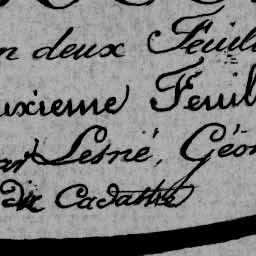 n deux Feuil
uxieme Feuil
ar Lesné, Géom
du Cadastre